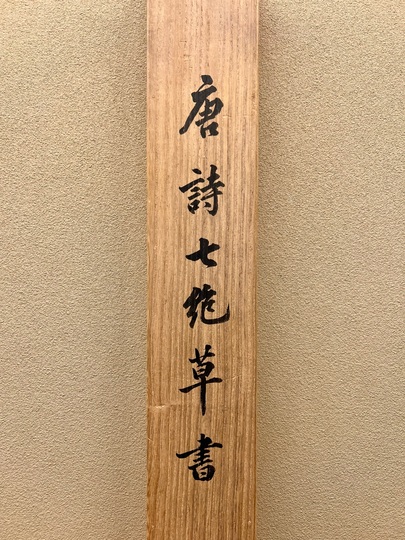 唐詩七絶草書